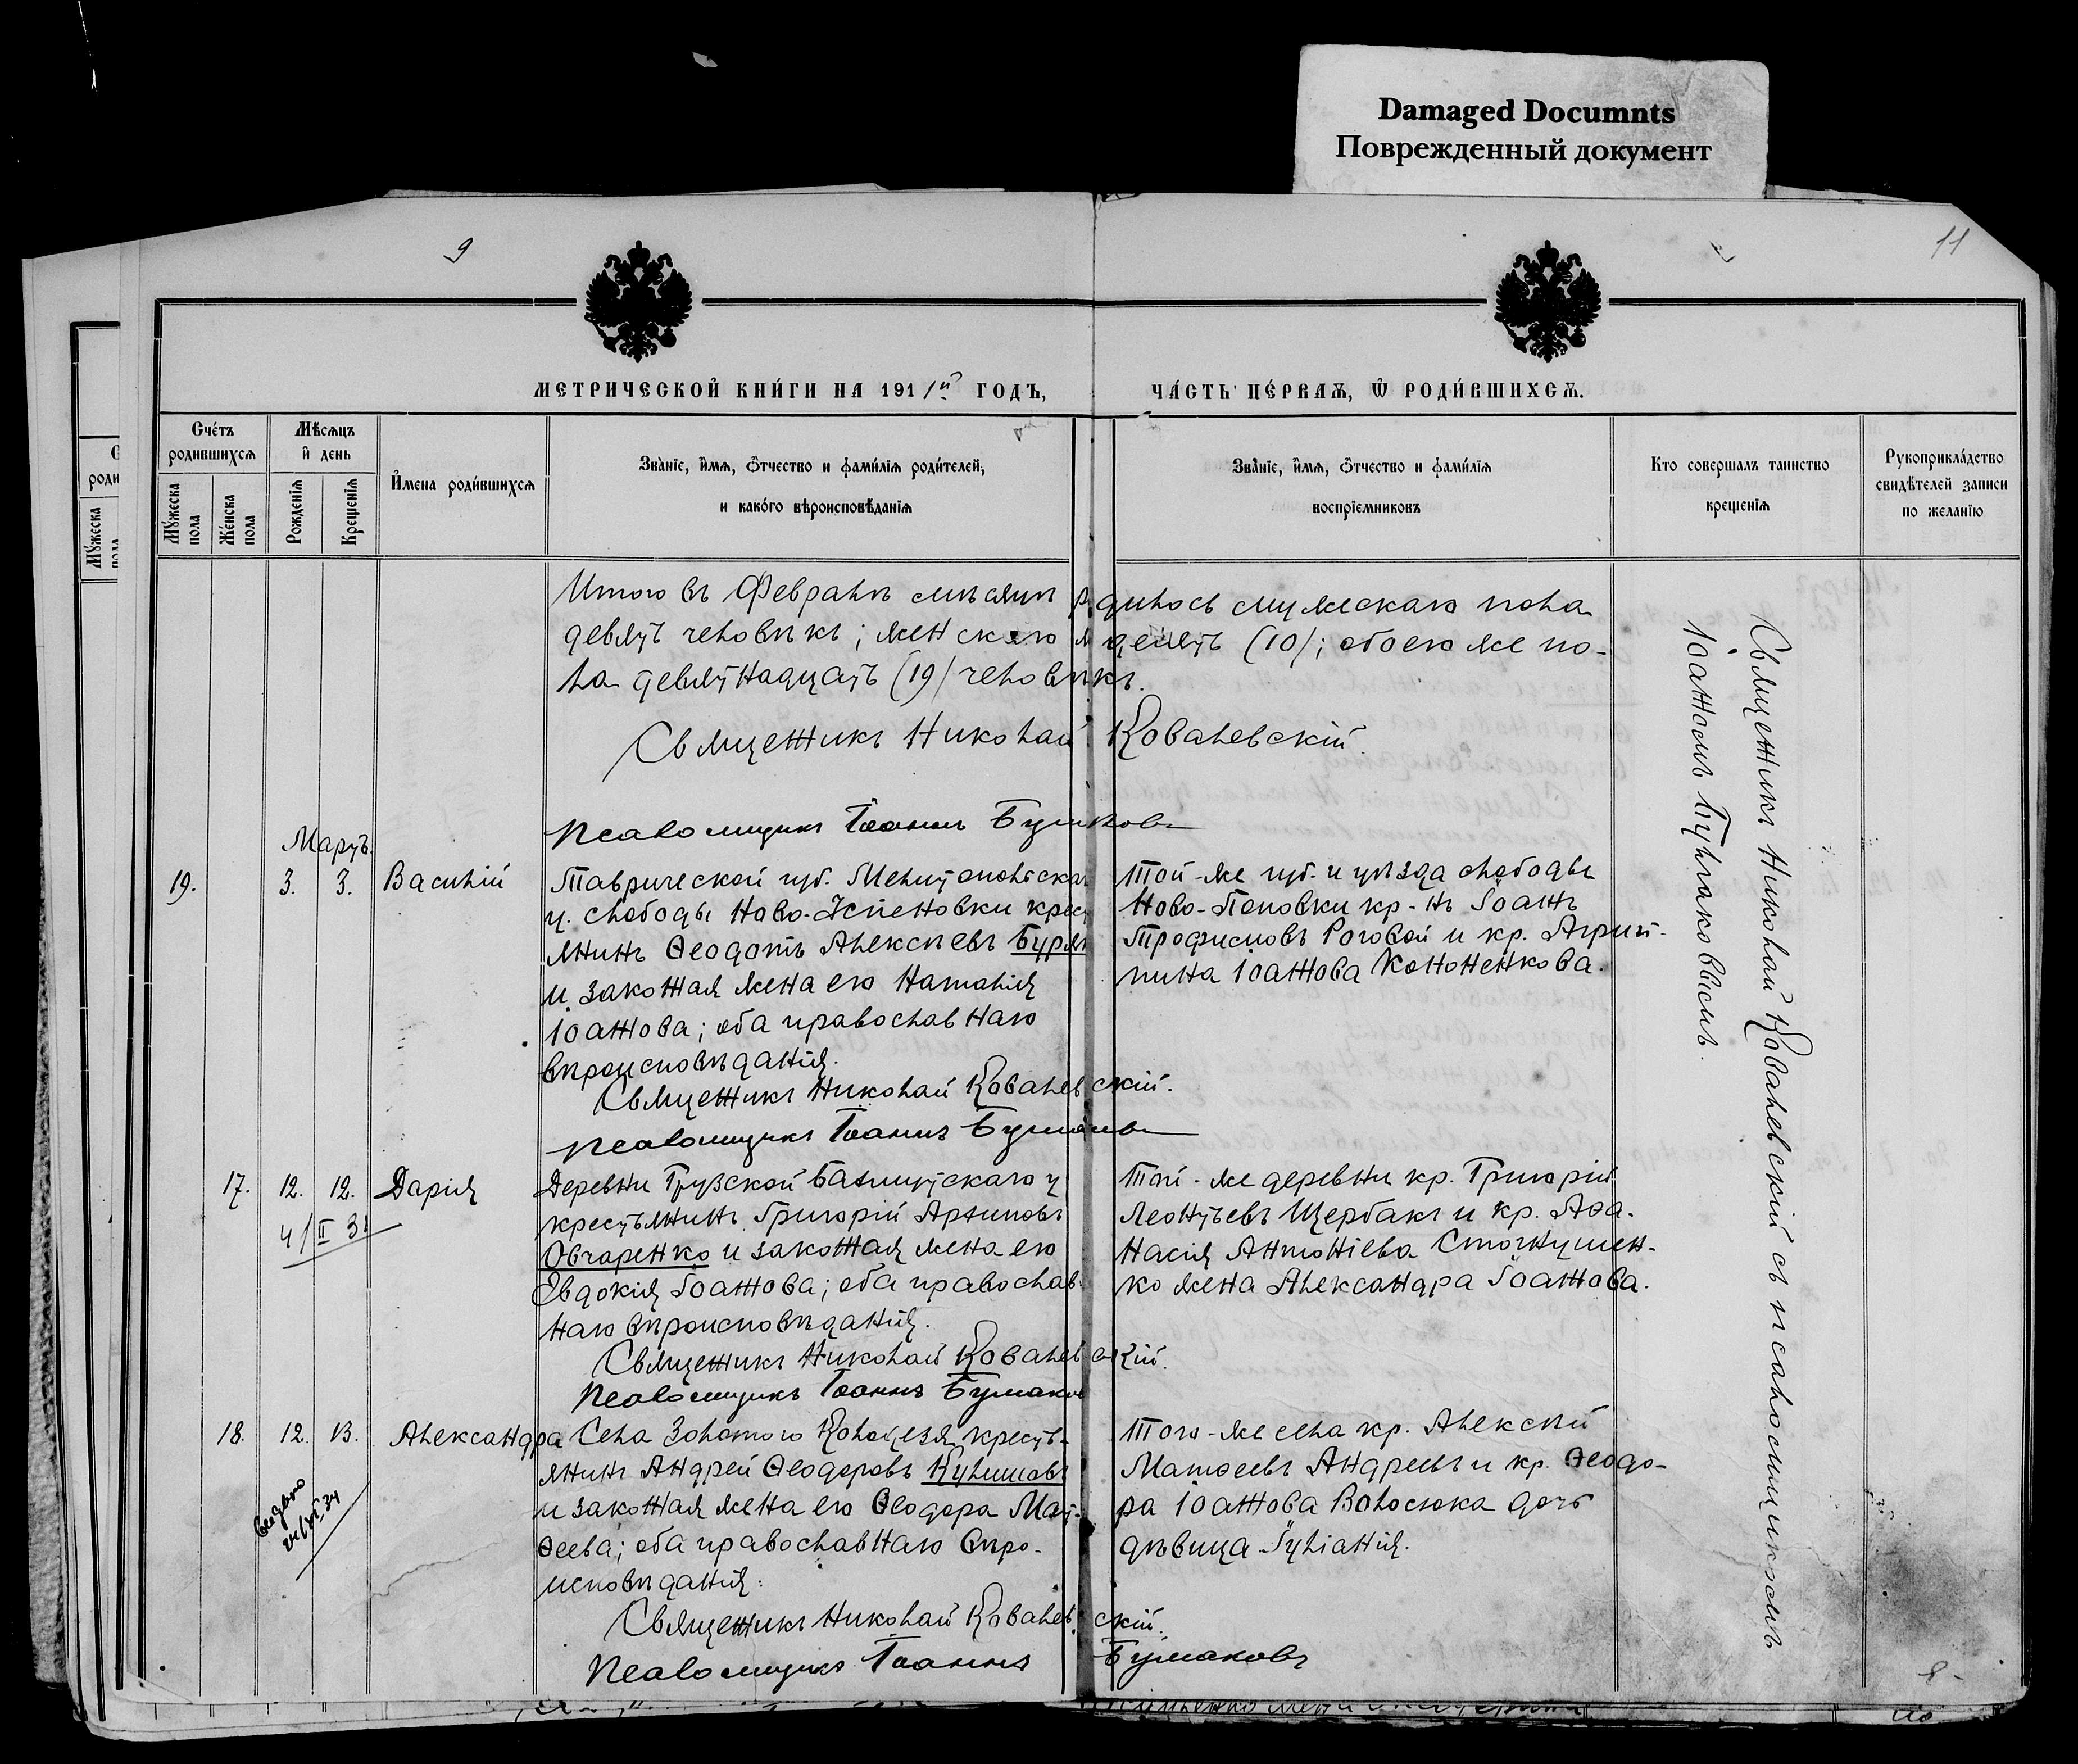 Damaged Documnts
Поврежденный документ
9
11
МЕТРИЧЕСКОЙ КНИГИ НА 1911й ГОДЪ,
ЧАСТЬ ПЕРВАЯ, Ѿ РОДИВШИХСЯ.
Счетъ родившихся
Мужеска пола
Женска пола
Мѣсяцъ и день
Рожденія
Крещенія
Имена родившихся
Званіе, имя, отчество и фамилія родителей,
и какого вѣроисповѣданія
Званіе, имя, отчество и фамилія
воспріемниковъ
Кто совершалъ таинство
крещенія
Рукоприкладство
свидѣтелей записи
по желанію
Итого въ Февралѣ мѣсяцѣ родилось мужескаго пола
девять человѣкъ; женскаго десять (10); обоего же по-
ла девятнадцать (19) человѣкъ.
Священникъ Николай Ковалевскій.
Псаломщикъ Іоаннъ Булгаковъ
Мартъ.
19.
3.
3.
Василій
Таврической губ. Мелитопольскаго
у. слободы Ново-Успеновки кресть
янинъ Ѳеодотъ Алексѣевъ Буряк
и законная жена его Наталія
Іоаннова; оба православнаго
вѣроисповѣданія.
Священникъ Николай Ковалевскій.
Псаломщикъ Іоаннъ Булгаковъ
Той-же губ. и уѣзда слободы
Ново-Поповки кр-нъ Іоаннъ
Трофимовъ Роговой и кр. Агрип-
пина Іоаннова Кононенкова.
17.
12.
12.
Дарія
4/II 31
Деревни Грузской Бахмутскаго у
крестьянинъ Григорій Архиповъ
Овчаренко и законная жена его
Евдокія Іоаннова; оба православ-
наго вѣроисповѣданія.
Священникъ Николай Ковалевскій.
Псаломщикъ Іоаннъ Булгаковъ
Той-же деревни кр. Григорій
Леонтьевъ Щербакъ и кр. Аѳа-
насія Антоніева
жена Александра Іоаннова.
18.
12.
13.
Александра
Села Золотого Колодезя кресть-
янинъ Андрей Ѳеодоровъ Кулишовъ
и законная жена его Ѳеодора Мат-
ѳеева; оба православнаго вѣро-
исповѣданія:
Священникъ Николай Ковалевскій.
Псаломщикъ Іоаннъ Булгаковъ
Того-же села кр. Алексѣй
Матѳеевъ Андреевъ и кр. Ѳеодо-
ра Іоаннова Волосюка дочь
дѣвица Іуліанія.
Священникъ Николай Ковалевскій съ псаломщикомъ
Іоанномъ Булгаковымъ.